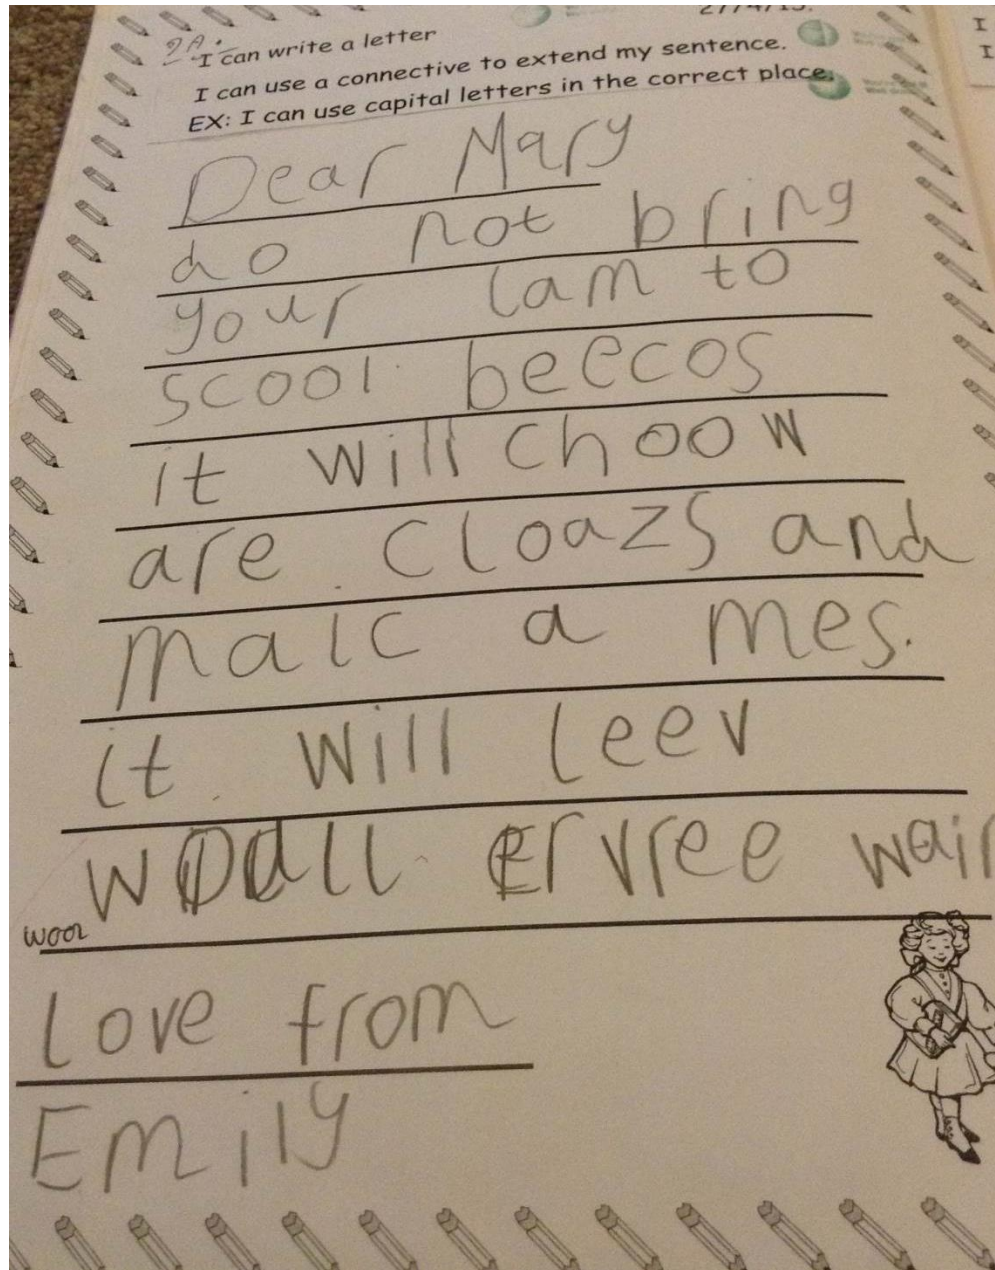 2A.
I can write a letter
I can use a connective to extend my sentence.
EX: I can use capital letters in the correct place.
Dear Mary
do not bring
your lam to
scool beecos
it will choow
are cloazs and
malc a mes.
it will leev
wooll ervree wair
wool
Love from
Emily
I
I